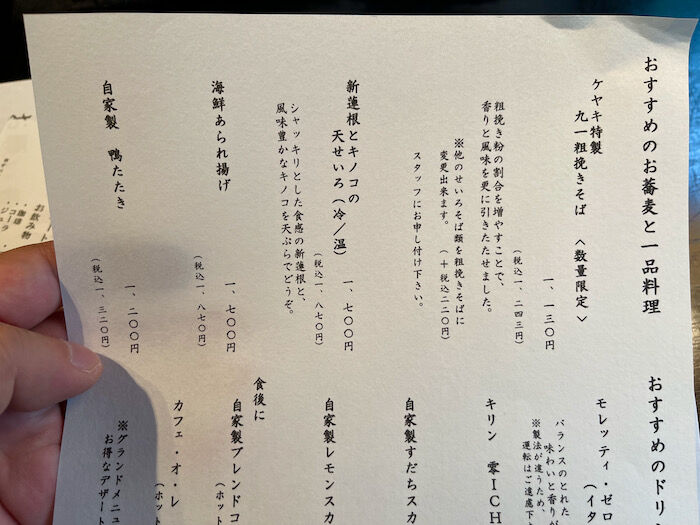 おすすめのお蕎麦と一品料理
ケヤキ特製
九一粗挽きそば <数量限定>
一、一三〇円
(税込一、二四三円)
粗挽き粉の割合を増やすことで、
香りと風味を更に引きたたせました。
※他のせいろそば類を粗挽きそばに
変更出来ます。 (+税込二二〇円)
スタッフにお申し付け下さい。
新蓮根とキノコの
天せいろ(冷/温)
一、七〇〇円
(税込一、八七〇円)
シャッキリとした食感の新蓮根と、
風味豊かなキノコを天ぷらでどうぞ。
海鮮あられ揚げ
一、七〇〇円
(税込一、八七〇円)
自家製 鴨たたき
一、二〇〇円
(税込一、三二〇円)
おすすめのドリ
モレッティ・ゼロ
(イタ
バランスのとれた
味わいと香りが
※製法が違うため、
運転はご遠慮下
キリン 零ICH
自家製すだちスカ
自家製レモンスカ
食後に
自家製ブレンドコ
(ホット
カフェ・オ・レ
(ホット
※グランドメニュ
お得なデザート
お飲み物
珈琲
コーラ
ジュ